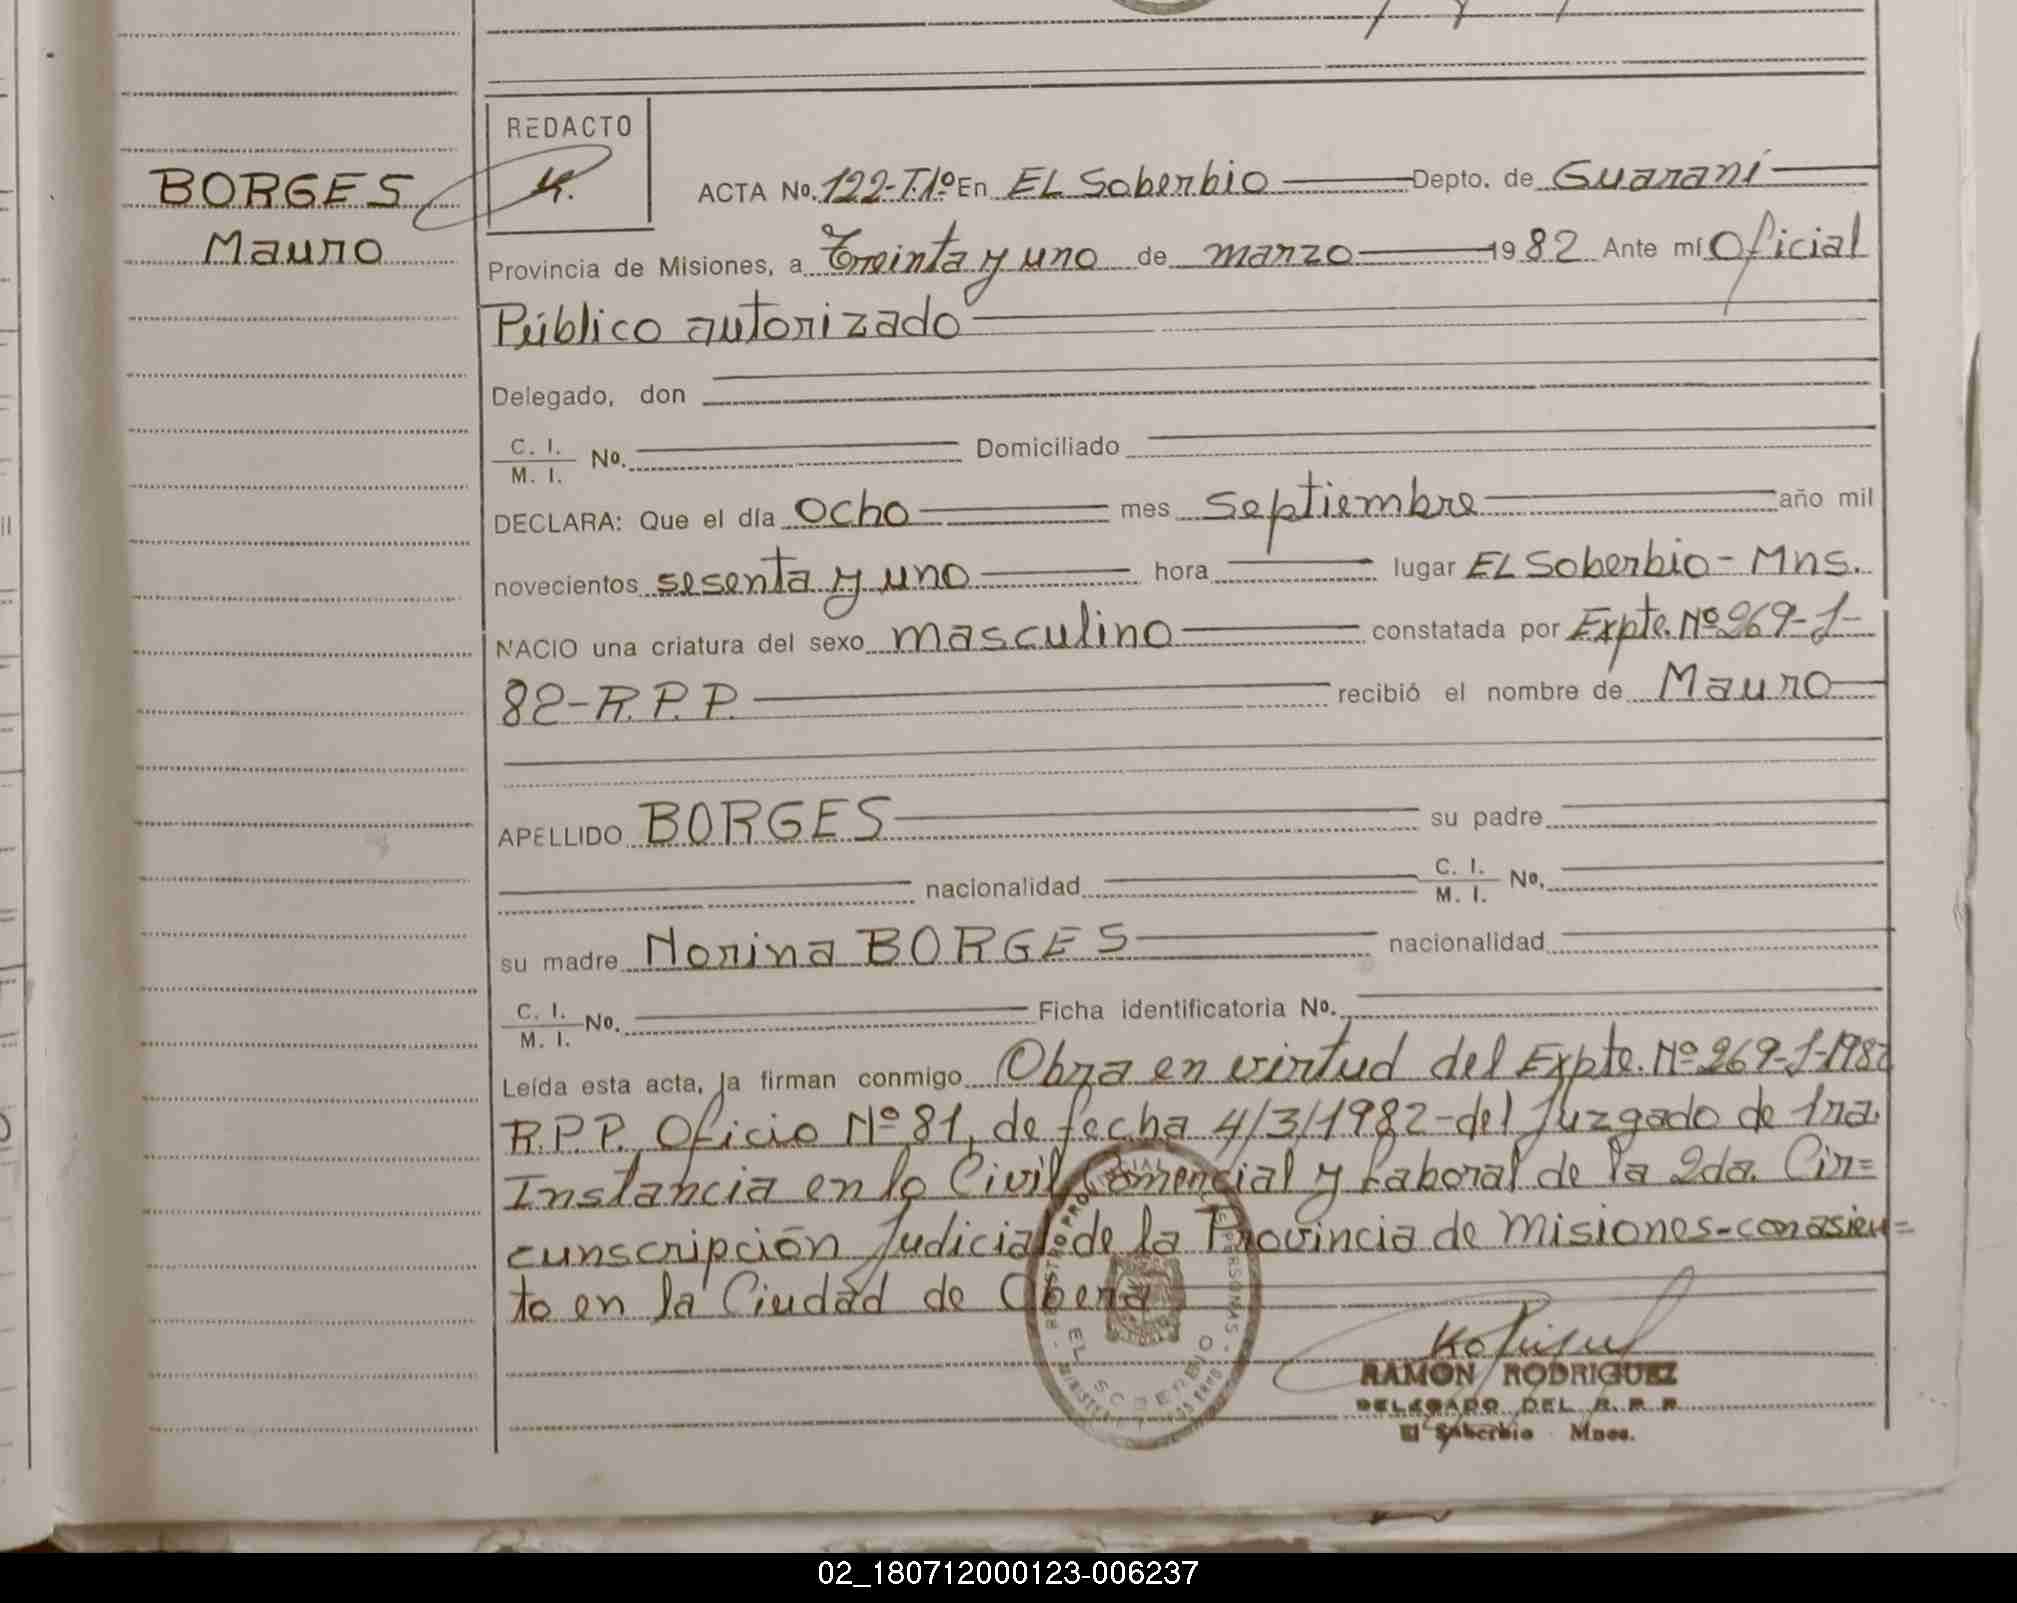 REDACTO
BORGES
Mauro
ACTA No. 122-T.1º En EL Soberbio Depto. de Guaraní
Provincia de Misiones, a Treinta y uno de marzo 1982 Ante mí Oficial
Público autorizado
Delegado, don
C. I. / M. I. No. Domiciliado
DECLARA: Que el día ocho mes septiembre año mil
novecientos sesenta y uno hora lugar EL Soberbio - Mns.
NACIO una criatura del sexo masculino constatada por Expte. Nº 269-J-
82-R.P.P. recibió el nombre de Mauro
APELLIDO BORGES su padre
nacionalidad C. I. / M. I. No.
su madre Norina BORGES nacionalidad
C. I. / M. I. No. Ficha identificatoria No.
Leída esta acta, la firman conmigo Obra en virtud del Expte. Nº 269-J-1982
R.P.P. Oficio Nº 81, de fecha 4/3/1982-del Juzgado de 1ra.
Instancia en lo Civil Comercial y Laboral de la 2da. Cir=
cunscripción Judicial de la Provincia de Misiones-con asien=
to en la Ciudad de Oberá
EL SOBERBIO
RAMON RODRIGUEZ
DELEGADO DEL R. P. P.
El Soberbio Mnes.
02_180712000123-006237